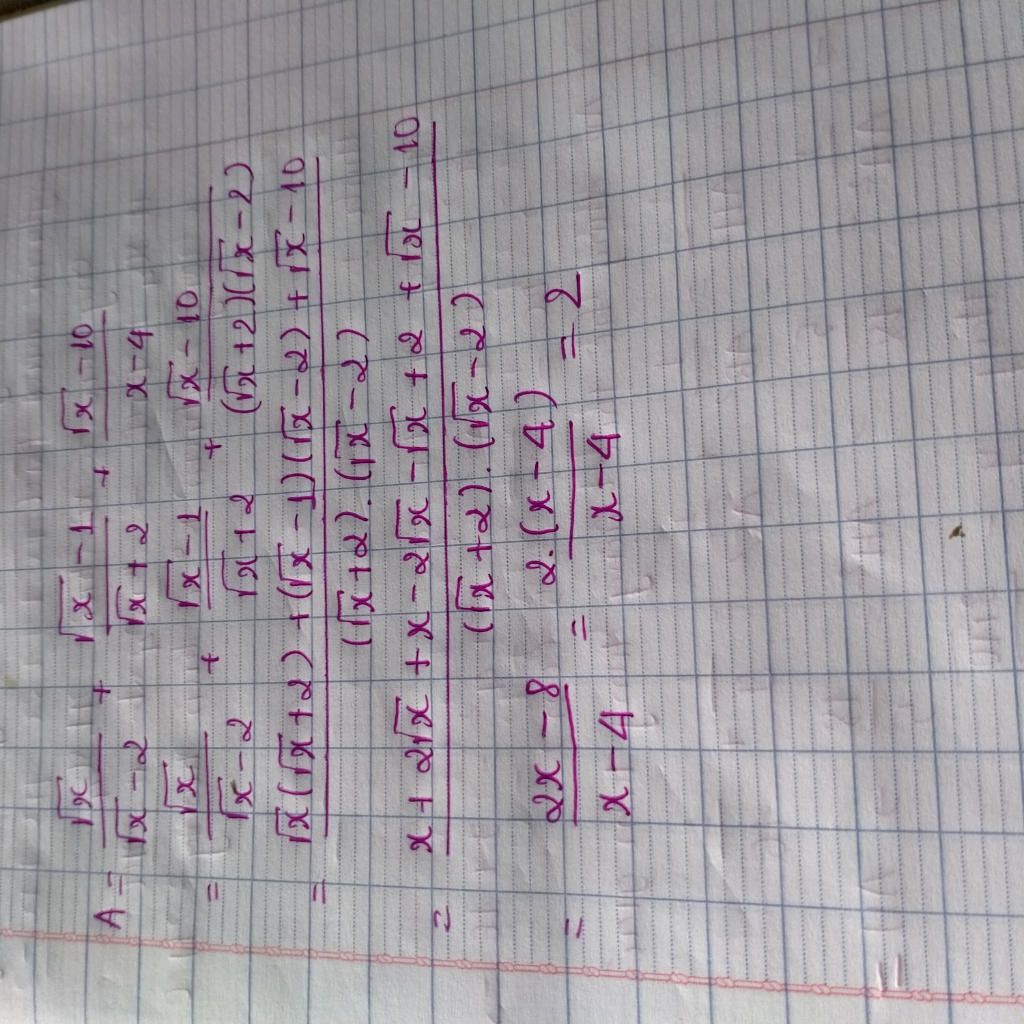 A = √x / (√x - 2) + (√x - 1) / (√x + 2) + (√x - 10) / (x - 4)
= √x / (√x - 2) + (√x - 1) / (√x + 2) + (√x - 10) / ((√x + 2)(√x - 2))
= (√x(√x + 2) + (√x - 1)(√x - 2) + √x - 10) / ((√x + 2).(√x - 2))
= (x + 2√x + x - 2√x - √x + 2 + √x - 10) / ((√x + 2).(√x - 2))
= (2x - 8) / (x - 4) = 2.(x - 4) / (x - 4) = 2